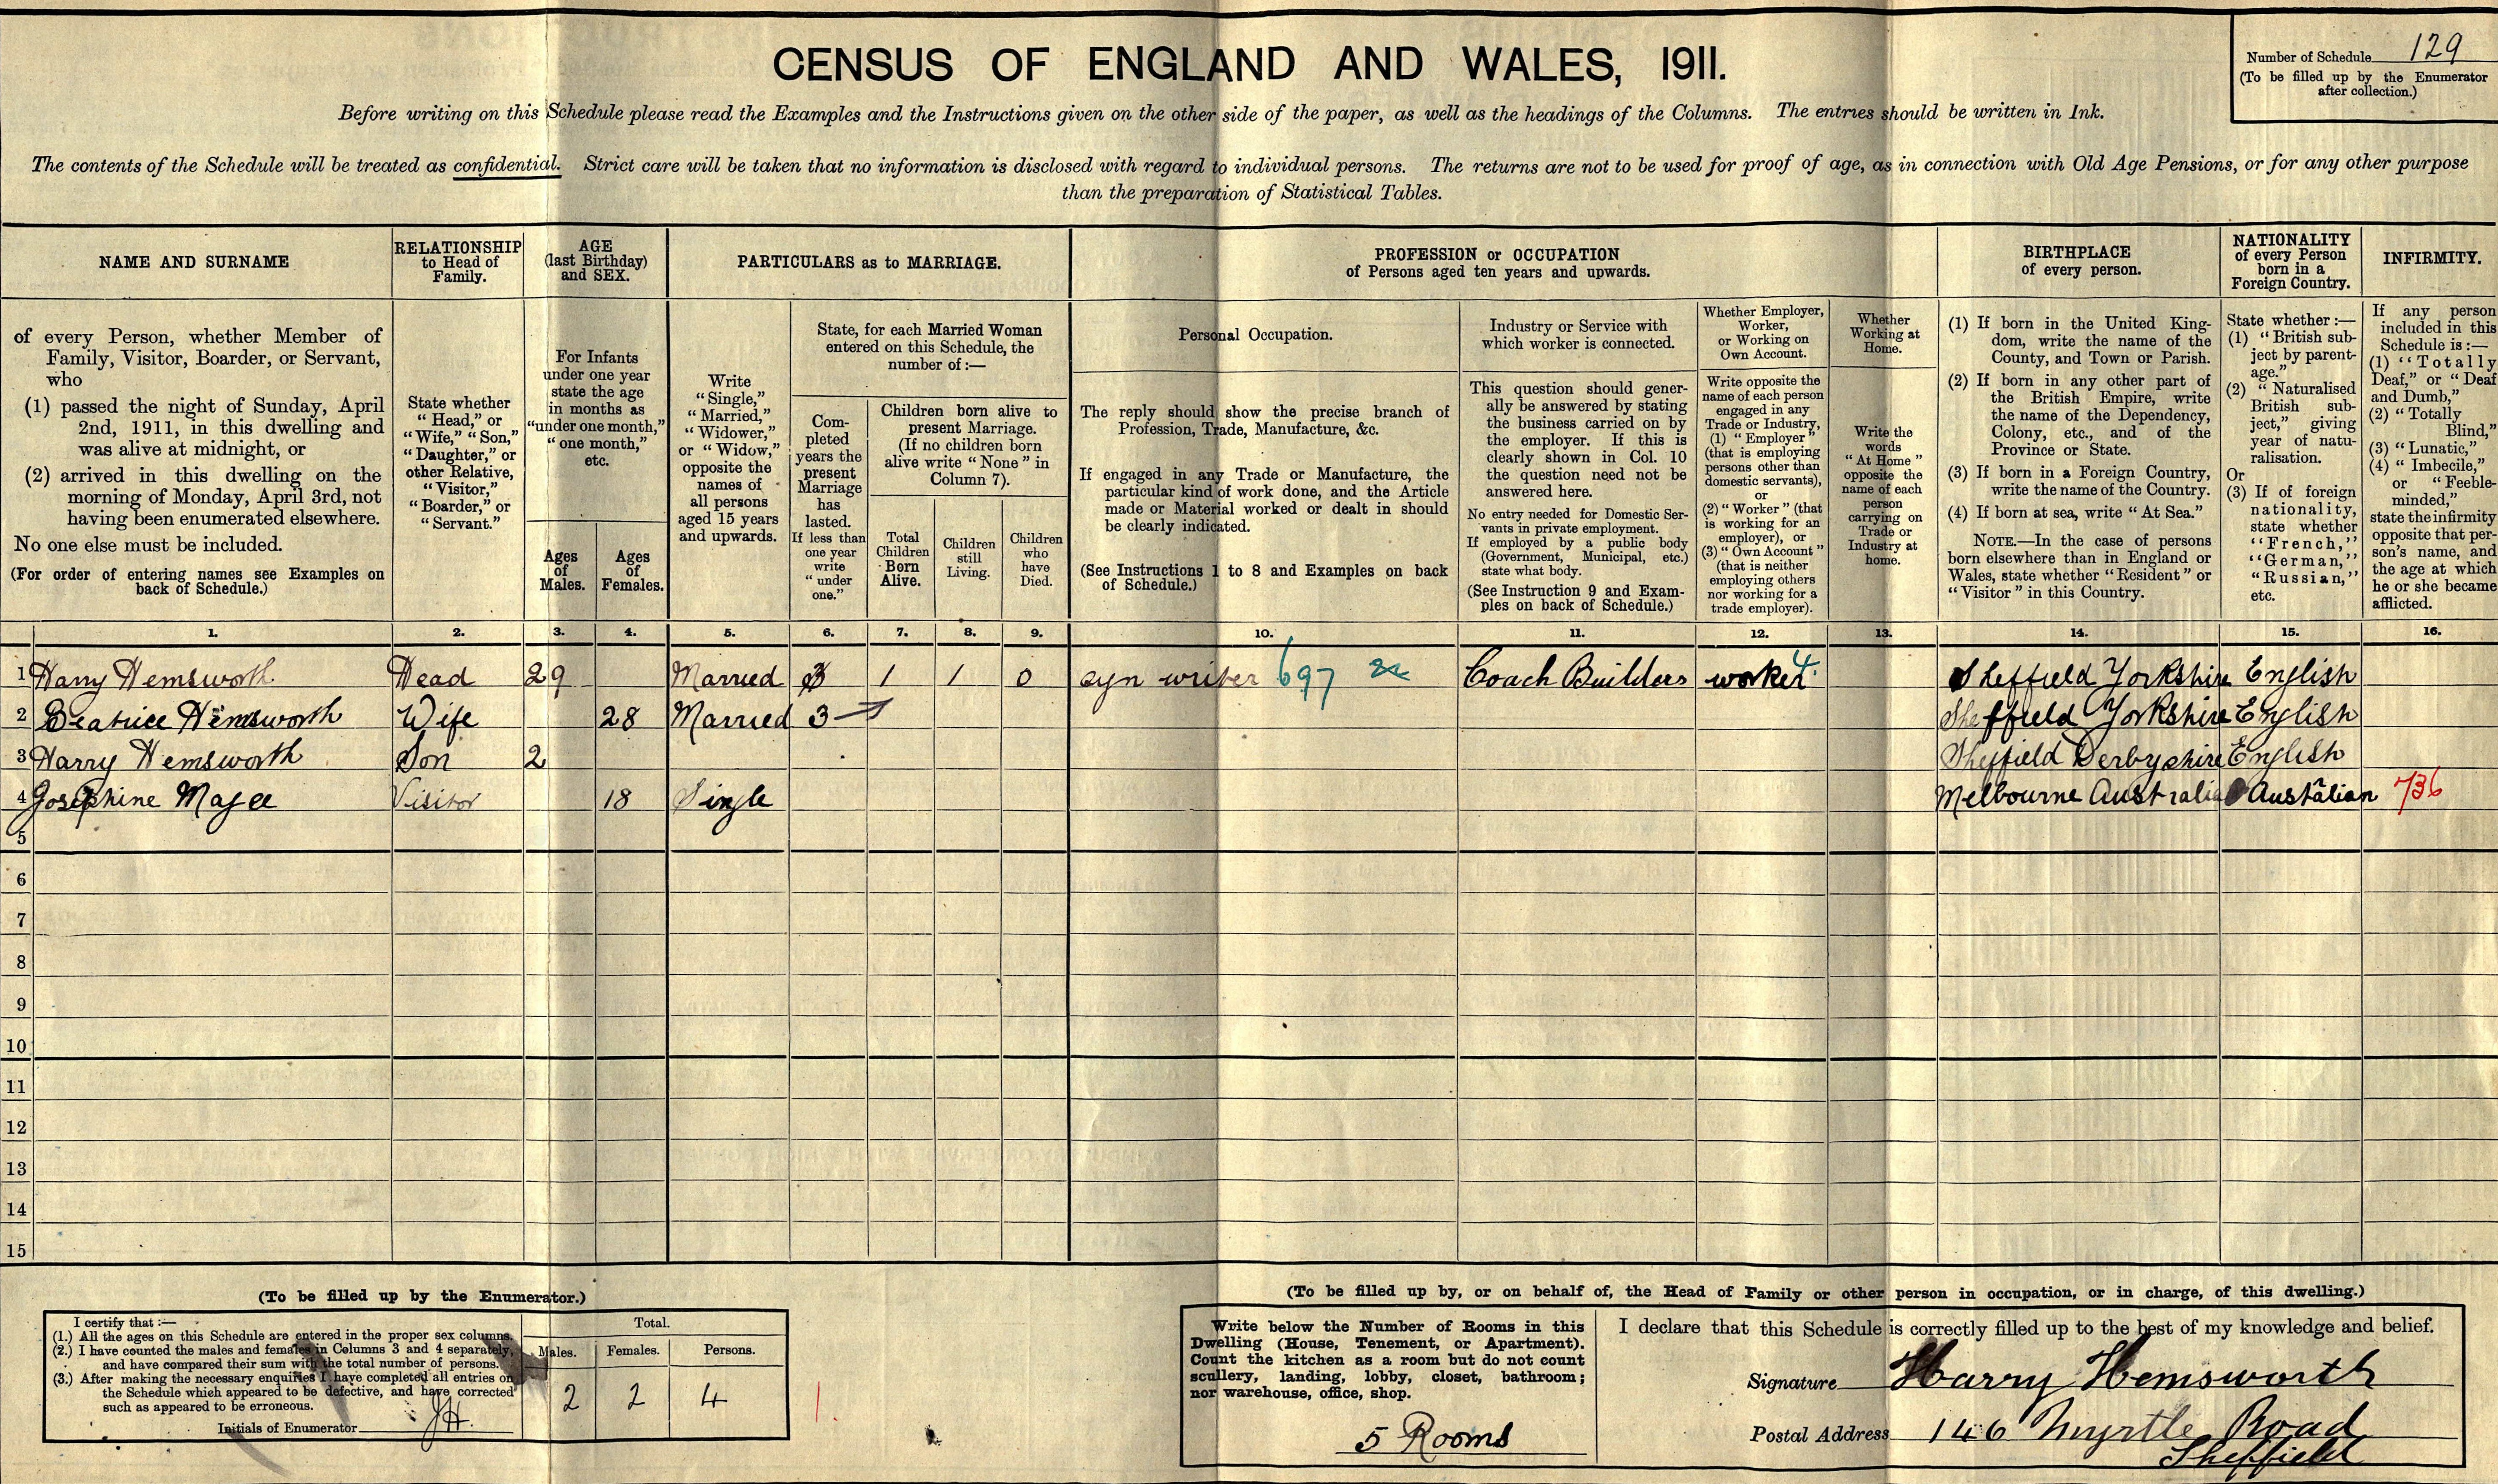 CENSUS OF ENGLAND AND WALES, 1911.
Number of Schedule 129
(To be filled up by the Enumerator
after collection.)
Before writing on this Schedule please read the Examples and the Instructions given on the other side of the paper, as well as the headings of the Columns. The entries should be written in Ink.
The contents of the Schedule will be treated as confidential. Strict care will be taken that no information is disclosed with regard to individual persons. The returns are not to be used for proof of age, as in connection with Old Age Pensions, or for any other purpose
than the preparation of Statistical Tables.
NAME AND SURNAME
of every Person, whether Member of
Family, Visitor, Boarder, or Servant,
who
(1) passed the night of Sunday, April
2nd, 1911, in this dwelling and
was alive at midnight, or
(2) arrived in this dwelling on the
morning of Monday, April 3rd, not
having been enumerated elsewhere.
No one else must be included.
(For order of entering names see Examples on
back of Schedule.)
RELATIONSHIP
to Head of
Family.
State whether
"Head," or
"Wife," "Son,"
"Daughter," or
other Relative,
"Visitor,"
"Boarder," or
"Servant."
AGE
(last Birthday)
and SEX.
For Infants
under one year
state the age
in months as
"under one month,"
"one month,"
etc.
Ages
of
Males.
Ages
of
Females.
PARTICULARS as to MARRIAGE.
Write
"Single,"
"Married,"
"Widower,"
or "Widow,"
opposite the
names of
all persons
aged 15 years
and upwards.
State, for each Married Woman
entered on this Schedule, the
number of :—
Com-
pleted
years the
present
Marriage
has
lasted.
If less than
one year
write
"under
one."
Children born alive to
present Marriage.
(If no children born
alive write "None" in
Column 7).
Total
Children
Born
Alive.
Children
still
Living.
Children
who
have
Died.
PROFESSION or OCCUPATION
of Persons aged ten years and upwards.
Personal Occupation.
The reply should show the precise branch of
Profession, Trade, Manufacture, &c.
If engaged in any Trade or Manufacture, the
particular kind of work done, and the Article
made or Material worked or dealt in should
be clearly indicated.
(See Instructions 1 to 8 and Examples on back
of Schedule.)
Industry or Service with
which worker is connected.
This question should gener-
ally be answered by stating
the business carried on by
the employer. If this is
clearly shown in Col. 10
the question need not be
answered here.
No entry needed for Domestic Ser-
vants in private employment.
If employed by a public body
(Government, Municipal, etc.)
state what body.
(See Instruction 9 and Exam-
ples on back of Schedule.)
Whether Employer,
Worker,
or Working on
Own Account.
Write opposite the
name of each person
engaged in any
Trade or Industry,
(1) "Employer"
(that is employing
persons other than
domestic servants),
or
(2) "Worker" (that
is working for an
employer), or
(3) "Own Account"
(that is neither
employing others
nor working for a
trade employer).
Whether
Working at
Home.
Write the
words
"At Home"
opposite the
name of each
person
carrying on
Trade or
Industry at
home.
BIRTHPLACE
of every person.
(1) If born in the United King-
dom, write the name of the
County, and Town or Parish.
(2) If born in any other part of
the British Empire, write
the name of the Dependency,
Colony, etc., and of the
Province or State.
(3) If born in a Foreign Country,
write the name of the Country.
(4) If born at sea, write "At Sea."
NOTE.—In the case of persons
born elsewhere than in England or
Wales, state whether "Resident" or
"Visitor" in this Country.
NATIONALITY
of every Person
born in a
Foreign Country.
State whether :—
(1) "British sub-
ject by parent-
age."
(2) "Naturalised
British sub-
ject," giving
year of natu-
ralisation.
Or
(3) If of foreign
nationality,
state whether
"French,"
"German,"
"Russian,"
etc.
INFIRMITY.
If any person
included in this
Schedule is :—
(1) "Totally
Deaf," or "Deaf
and Dumb,"
(2) "Totally
Blind,"
(3) "Lunatic,"
(4) "Imbecile,"
or "Feeble-
minded,"
state the infirmity
opposite that per-
son's name, and
the age at which
he or she became
afflicted.
1. 2. 3. 4. 5. 6. 7. 8. 9. 10. 11. 12. 13. 14. 15. 16.
1 Harry Hemsworth Head 29 Married 3 1 1 0 syn writer 697 Coach Builders worker 4 Sheffield Yorkshire English
2 Beatrice Hemsworth Wife 28 Married 3 Sheffield Yorkshire English
3 Harry Hemsworth Son 2 Sheffield Derbyshire English
4 Josephine Magee Visitor 18 Single Melbourne Australia Austalian 736
5
6
7
8
9
10
11
12
13
14
15
(To be filled up by the Enumerator.)
I certify that :—
(1.) All the ages on this Schedule are entered in the proper sex columns.
(2.) I have counted the males and females in Columns 3 and 4 separately,
and have compared their sum with the total number of persons.
(3.) After making the necessary enquiries I have completed all entries on
the Schedule which appeared to be defective, and have corrected
such as appeared to be erroneous.
Initials of Enumerator JH.
Total.
Males. Females. Persons.
2 2 4
(To be filled up by, or on behalf of, the Head of Family or other person in occupation, or in charge, of this dwelling.)
Write below the Number of Rooms in this
Dwelling (House, Tenement, or Apartment).
Count the kitchen as a room but do not count
scullery, landing, lobby, closet, bathroom;
nor warehouse, office, shop.
5 Rooms
I declare that this Schedule is correctly filled up to the best of my knowledge and belief.
Signature Harry Hemsworth
Postal Address 146 Myrtle Road
Sheffield